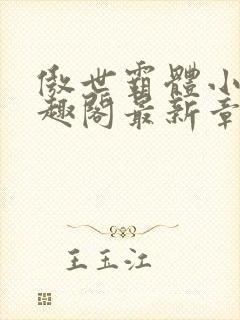 傲世霸體小
趣閣最新章
王玉江